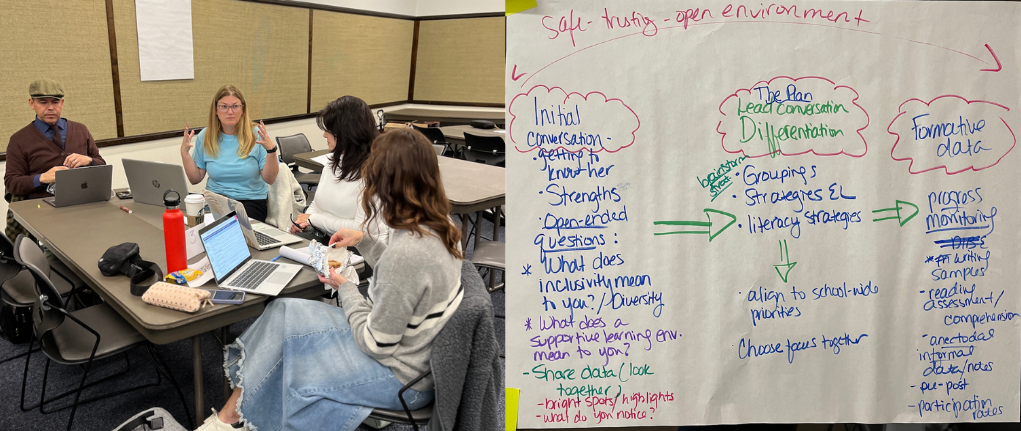 safe - trustig - open environment
Initial
conversation -
• getting to
know her
• Strengths
• Open-ended
questions :
* What does
inclusivity mean
to you?/Diversity
* What does a
supportive learning env.
mean to you?
- Share data (look
together)
- bright spots/highlights
- what do you notice?
The Plan
Lead Conversation
Differentiation
brainstorm
• Groupings
• Strategies EL
• literacy strategies
• align to school-wide
priorities
Choose focus together
Formative
data
progress
monitoring
writing
samples
- reading
assessment/
comprehension
- anectodal
informal
data/notes
- pre-post
- participation
rates